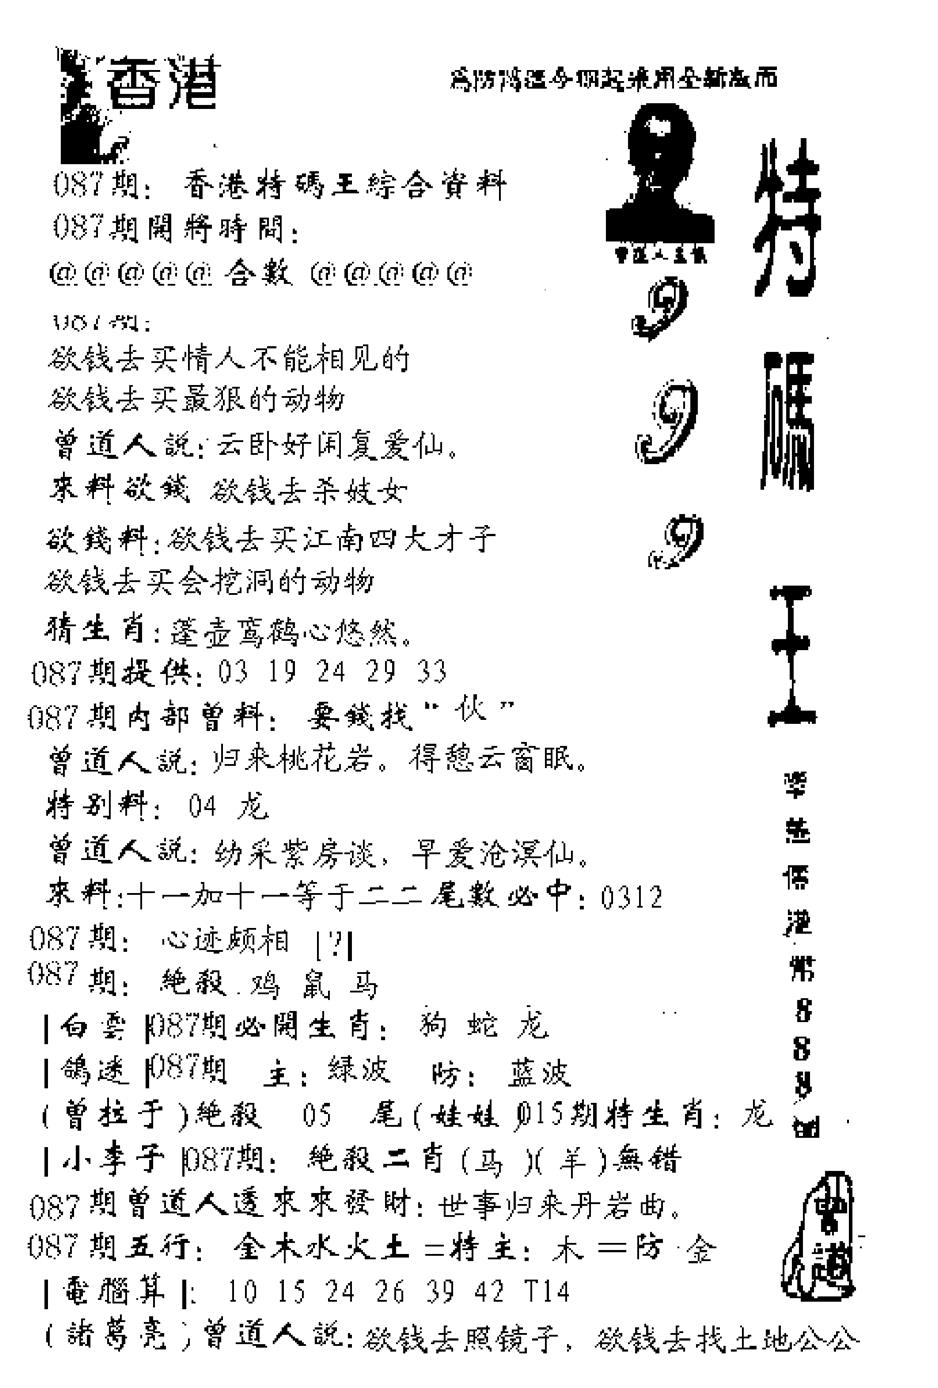 香港
為防偽冒今期起采用全新版面
087期: 香港特碼王綜合資料
087期開將時間:
@@@@@合數@@@@@
087期:
欲钱去买情人不能相见的
欲钱去买最狠的动物
曾道人説:云卧好闲复爱仙。
來料欲錢 欲钱去杀妓女
欲錢料:欲钱去买江南四大才子
欲钱去买会挖洞的动物
猜生肖:蓬壶鸾鹤心悠然。
087期提供: 03 19 24 29 33
087期内部曾料: 要錢找“伙”
曾道人説: 归来桃花岩。得憩云窗眠。
特别料: 04 龙
曾道人説: 幼采紫房谈, 早爱沧溟仙。
來料:十一加十一等于二二尾數必中: 0312
087期: 心迹颇相 [?]
087期: 絶殺 鸡 鼠 马
|白雲|087期必開生肖: 狗 蛇 龙
|鴿迷|087期 主: 绿波 防: 蓝波
(曾拉于)絶殺 05 尾(娃娃)015期特生肖: 龙
|小李子|087期: 絶殺二肖(马)(羊)無错
087期曾道人透來來發財: 世事归来丹岩曲。
087期五行: 金木水火土=特主: 木=防 金
|電腦算|: 10 15 24 26 39 42 T14
(諸葛亮)曾道人説:欲钱去照镜子, 欲钱去找土地公公
曾道人主儀
9
9
9
特
碼
王
港
幣
8
8
8
曾道